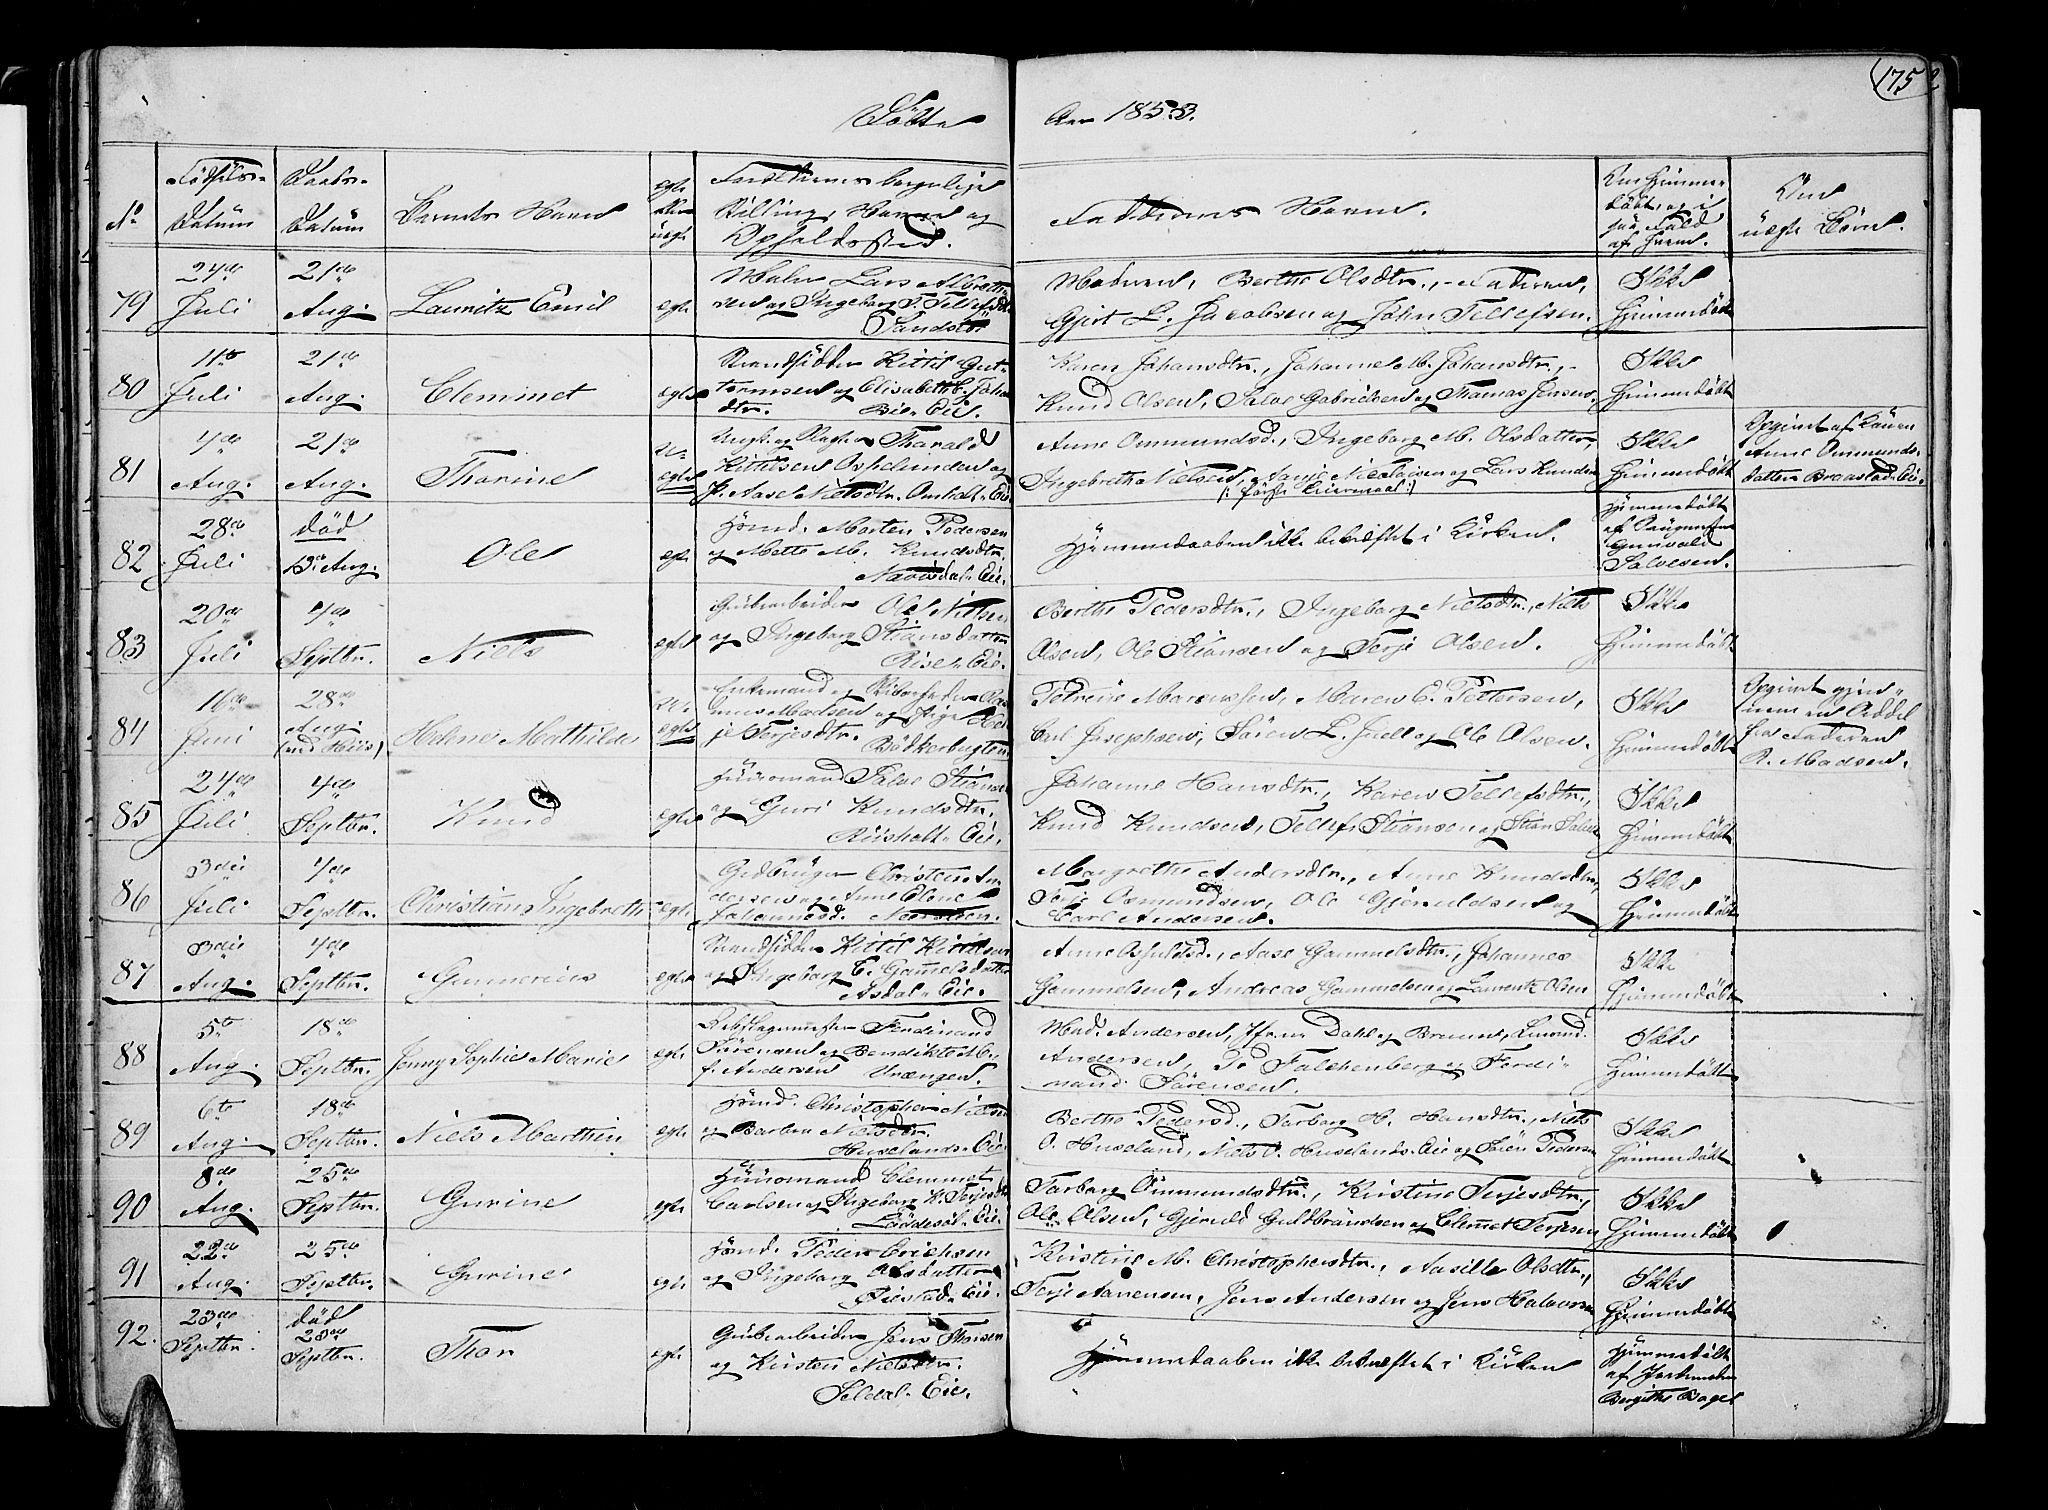 175
Döbte
Aar 1853.
No
Födsels-
Datum
Daabs-
Datum
Barnets Navn
egte
eller
uegte
Forældrenes borgerlige
Stilling, Navne og
Opholdssted.
Faddernes Navne.
Om hjemme-
döbt, og i
saa Fald
af hvem.
Om
uegte Börn.
79
24de
Juli
21de
Aug.
Lauritz Emil
egte
Maler Lars Albret-
sen og Ingeborg T. Tellefsdtr.
Sandsto.
Moderen, Berthe Olsdtr., - Faderen,
Gjert L. Jacobsen og John Tellefsen.
Ikke
Hjemmedöbt
80
11te
Juli
21de
Aug.
Clemmet
egte
Strandsidder Kittil Gut-
tormsen og Elisabeth C. Johan
dtr. Bie Eie.
Karen Johansdtr., Johanne M. Johansdtr., -
Knud Olsen, Salve Gabrielsen og Thomas Jensen.
Ikke
Hjemmedöbt
81
4de
Aug.
21de
Aug.
Thorine
U-
egte
Ungk. og Tharald
Kittelsen Osphelunden og
P. Aasel Nielsdtr. Omholt Eie
Anne Ommundsd., Ingeborg M. Olsdatter,
Ingebreth Nielsen, Terje Nielsen og Lars Knudsen
(: förste Leiermaal :)
Ikke
Hjemmedöbt
Opgivet af Konen
Anne Ommunds-
datter Braastad Eie.
82
28de
Juli
död
13de Aug.
Ole
egte
Hmd. Morten Pedersen
og Mette M. Knudsdtr.
Næversdal Eie.
Hjemmedaaben ikke bekræftet i Kirken.
Hjemmedöbt
af
Gunvald
Salvesen.
83
20de
Juli
4de
Septbr.
Niels
egte
Grubearbeider Ole Nilsen
og Ingeborg Stiansdatter
Rise Eie.
Berthe Pedersdtr., Ingeborg Nielsdtr., Niels
Olsen, Ole Stiansen og Terje Olsen.
Ikke
Hjemmedöbt
84
16de
Juni
28de
Aug.
(ved Hiis)
Helene Mathilde
U-
egte
Enkemand og Ras-
mus Madsen og Pige Hel-
je Terjesdtr. Bödkerbugten
Petrine Marcussen, Maren E. Pettersen,
Carl Josephsen, Sören L. Juell og Ole Olsen.
Ikke
Hjemmedöbt
Opgivet gjen-
nem en Seddel
fra Faderen
R. Madsen.
85
24de
Juli
4de
Septbr.
Knud
egte
Huusmand Salve Stiansen
og Guri Knudsdtr.
Riisholt Eie.
Johanne Hansdtr., Karen Tellefsdtr.,
Knud Knudsen, Tellef Stiansen og Stian Salvesen
Ikke
Hjemmedöbt
86
3die
Juli
4de
Septbr.
Christian Ingebreth
egte
Gdbruger Christen An-
dersen og Anne Elene
Johannesd. Næskilen.
Margrethe Andersdtr., Anne Knudsdtr.,
Terje Osmundsen, Ole Gjeruldsen og
Carl Andersen.
Ikke
Hjemmedöbt
87
3die
Aug.
4de
Septbr.
Gunerius
egte
Strandsidder Kittil Kittilsen
og Ingeborg E. Gamelsdatter
Asdal Eie.
Anne Osjuldsd., Aase Gammelsdtr., Johannes
Gammelsen, Andreas Gammelsen og Laurentz Olsen
Ikke
Hjemmedöbt
88
5te
Aug.
18de
Septbr.
Jenny Sophie Marie
egte
Rebslagermester Ferdinand
Sörensen og Bendikte M.
f. Andersen Vrængen.
Mad. Andersen, Jfr.ne Dahl og Brunn,
Andersen, P. Falchenberg og Ferdi-
nand Sörensen.
Ikke
Hjemmedöbt
89
6te
Aug.
18de
Septbr.
Niels Marthin
egte
Hmd. Christopher Nielsen
og Barbro Nielsdtr.
Huselands Eie
Berthe Pedersd., Torborg H. Hansdtr., Niels
O. Huseland, Niels O. Huselands Eie og Sören Pedersen
Ikke
Hjemmedöbt
90
8de
Aug.
25de
Septbr.
Gurine
egte
Huusmand Clemmet
Carlsen og Ingeborg K. Terjesdtr.
Löddesöl Eie.
Torborg Ommundsdtr., Kirstine Terjesdtr.,
Ole Olsen, Gjeruld Guldbrandsen og Clemet Terjesen
Ikke
Hjemmedöbt
91
22de
Aug.
25de
Septbr.
Gurine
egte
Hmd. Peder Erichsen
og Ingeborg Olsdatter
Eie.
Kirstine M. Christophersdtr., Aasille Olsdtr.,
Terje Aanensen, Jens Andersen og Jens Halvorsen
Ikke
Hjemmedöbt
92.
23de
Septbr.
död
23de
Septbr.
Thor
egte
Grubearbeider Jens Thorsen
og Kirsten Nielsdtr.
Seldal Eie.
Hjemmedaaben ikke bekræftet i Kirken
Hjemmedöbt
af Jordmoder
Bergithe Boger